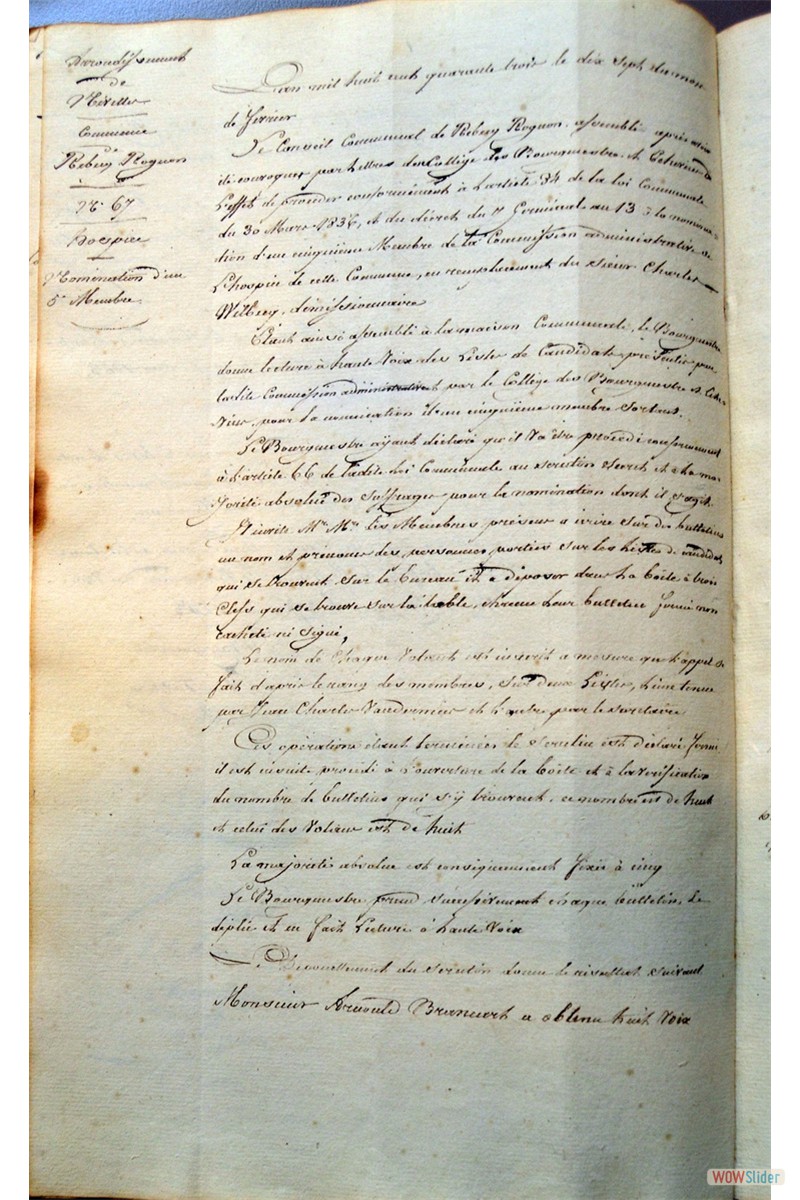 Arrondissement
de
Nivelles
Commune
de
Rebecq Rognon
N° 67
hospice
Nomination d'un
5e Membre
L'an mil huit cent quarante trois le dix sept du mois
de fevrier
Le Conseil Communal de Rebecq Rognon, assemblé après avoir
été convoqué par lettres du Collège des Bourgmestre et Echevins à
l'effet de proceder conformément à l'article 84 de la loi Communale
du 30 Mars 1836, et du décret du 7 Germinal an 13 à la nomina-
tion d'un cinquième Membre de la Commission administrative de
l'hospice de cette Commune, en remplacement du sieur Charles
démissionnaire
Etant ainsi assemblé à la maison Communale, le Bourgmestre
donne lecture à haute voix des Listes de Candidats présentés pour
ladite Commission administrative par le Collège des Bourgmestre et Eche-
vins, pour la nomination d'un cinquième membre sortant.
Le Bourgmestre ayant déclaré qu'il va être procédé conformément
à l'article 66 de ladite loi Communale au scrutin secret et à la ma-
jorité absolue des suffrages pour la nomination dont il s'agit.
Il invite Mrs les Membres présens a écrire sur des bulletins
un nom et prénoms des personnes portées sur les listes de candidats
qui se trouvent sur le bureau et a déposer dans la boîte à trois
Clefs qui se trouve sur la table, chacun leur bulletin fermé non
cacheté ni signé,
Le nom de chaque Votant est inscrit a mesure que l'appel se
fait d'après le rang des membres, sur deux Listes, l'une tenue
par Jean Charles et l'autre par le secretaire
Ces opérations étant terminées le scrutin est déclaré fermé
il est ensuite procédé à l'ouverture de la boîte et à la verification
du nombre de bulletins qui s'y trouvent, ce nombre est de huit
et celui des Votans est de huit
La majorité absolue est conséquemment fixée à cinq
Le Bourgmestre prend successivement chaque bulletin, le
déplie et en fait lecture à haute voix
Le Depouillement du scrutin donne le résultat suivant
Monsieur Arnould Brancart a obtenu huit Voix
WOWSlider